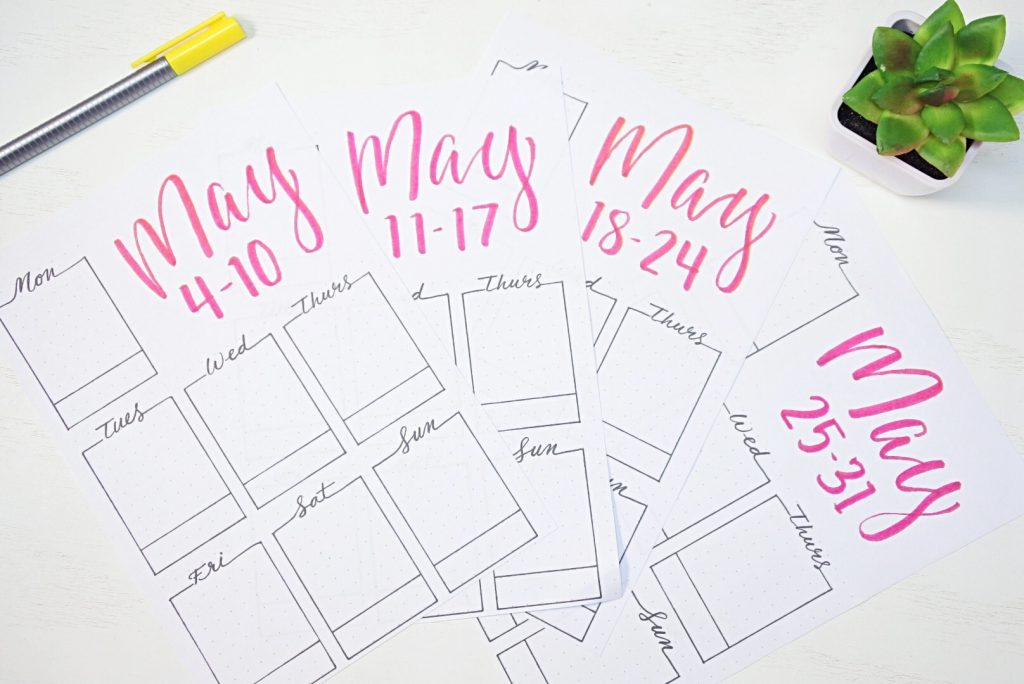 May
4-10
Mon
Tues
Wed
Thurs
Fri
Sat
Sun
May
11-17
Thurs
Sun
May
18-24
Thurs
May
25-31
Mon
Wed
Thurs
Sun